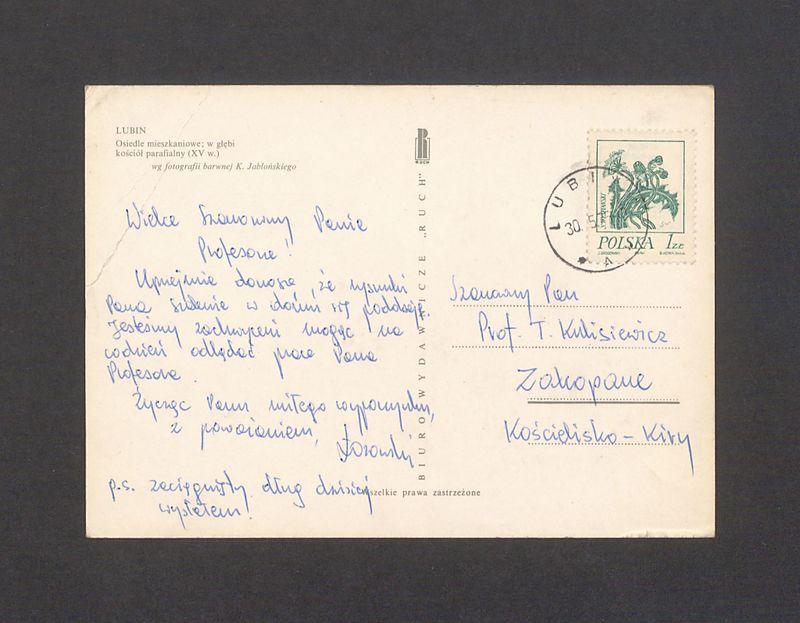 LUBIN
Osiedle mieszkaniowe; w głębi
kościół parafialny (XV w.)
wg fotografii barwnej K. Jabłońskiego
Wielce Szanowny Panie
Profesorze!
Uprzejmie donoszę, że rysunki
Pana w domu się
Jesteśmy zachwyceni mogąc na
codzień oglądać prace Pana
Profesora.
Życząc Panu miłego wypoczynku,
z poważaniem,
p.s. zaciągnięty dług dzisiaj
wysłałem!
RUCH
BIURO WYDAWNICZE „RUCH"
wszelkie prawa zastrzeżone
LUBIN
30. 5.
A
POLSKA 1 ZŁ
Szanowny Pan
Prof. T. Kulisiewicz
Zakopane
Kościelisko – Kiry